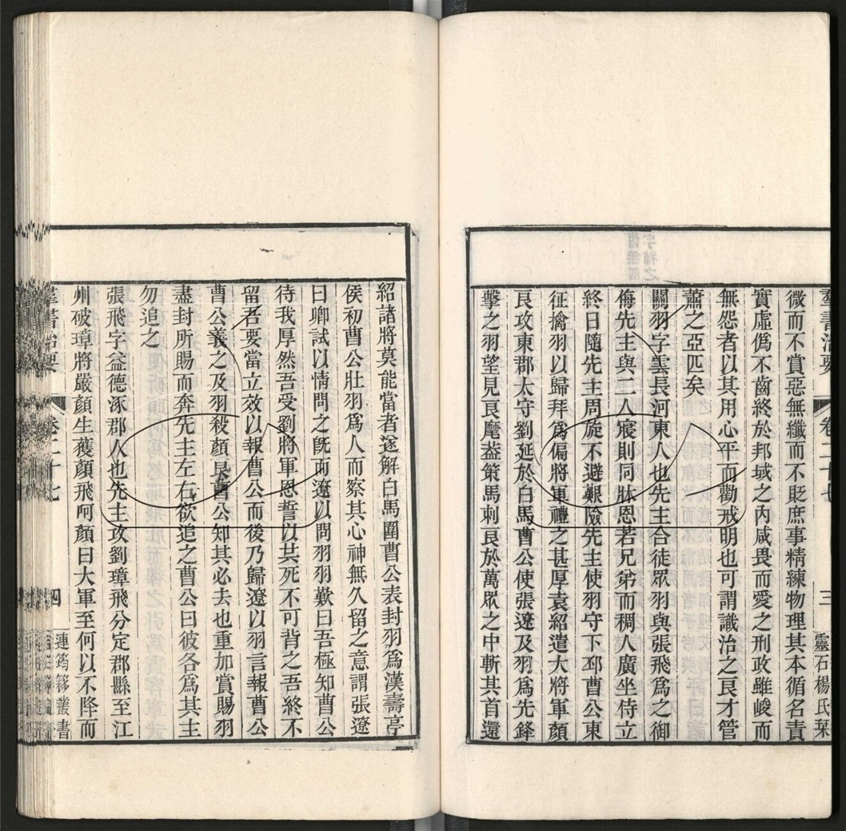 羣書治要 卷二十七 三 靈石楊氏栞
微而不賞惡無纖而不貶庶事精練物理其本循名責
實虛僞不齒終於邦域之內咸畏而愛之刑政雖峻而
無怨者以其用心平而勸戒明也可謂識治之良才管
蕭之亞匹矣
關羽字雲長河東人也先主合徒眾羽與張飛爲之御
侮先主與二人寢則同牀恩若兄弟而稠人廣坐侍立
終日隨先主周旋不避艱險先主使羽守下邳曹公東
征擒羽以歸拜爲偏將軍禮之甚厚袁紹遣大將軍顏
良攻東郡太守劉延於白馬曹公使張遼及羽爲先鋒
擊之羽望見良麾蓋策馬刺良於萬眾之中斬其首還
紹諸將莫能當者遂解白馬圍曹公表封羽爲漢壽亭
侯初曹公壯羽爲人而察其心神無久留之意謂張遼
曰卿試以情問之旣而遼以問羽羽歎曰吾極知曹公
待我厚然吾受劉將軍恩誓以共死不可背之吾終不
留吾要當立效以報曹公而後乃歸遼以羽言報曹公
曹公義之及羽殺顏良曹公知其必去也重加賞賜羽
盡封所賜而奔先主左右欲追之曹公曰彼各爲其主
勿追之
張飛字益德涿郡人也先主攻劉璋飛分定郡縣至江
州破璋將嚴顏生獲顏飛呵顏曰大軍至何以不降而
羣書治要 卷二十七 四 連筠簃叢書